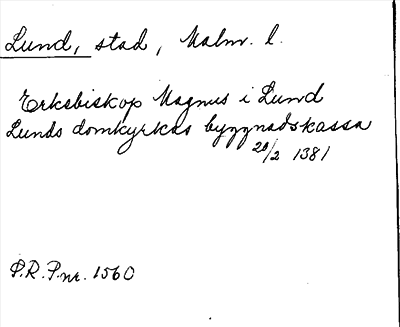 Lund, stad, Malm. l.
Ärkebiskop Magnus i Lund
Lunds domkyrkas byggnadskassa
20/2 1381
P.R.P.nr. 1560